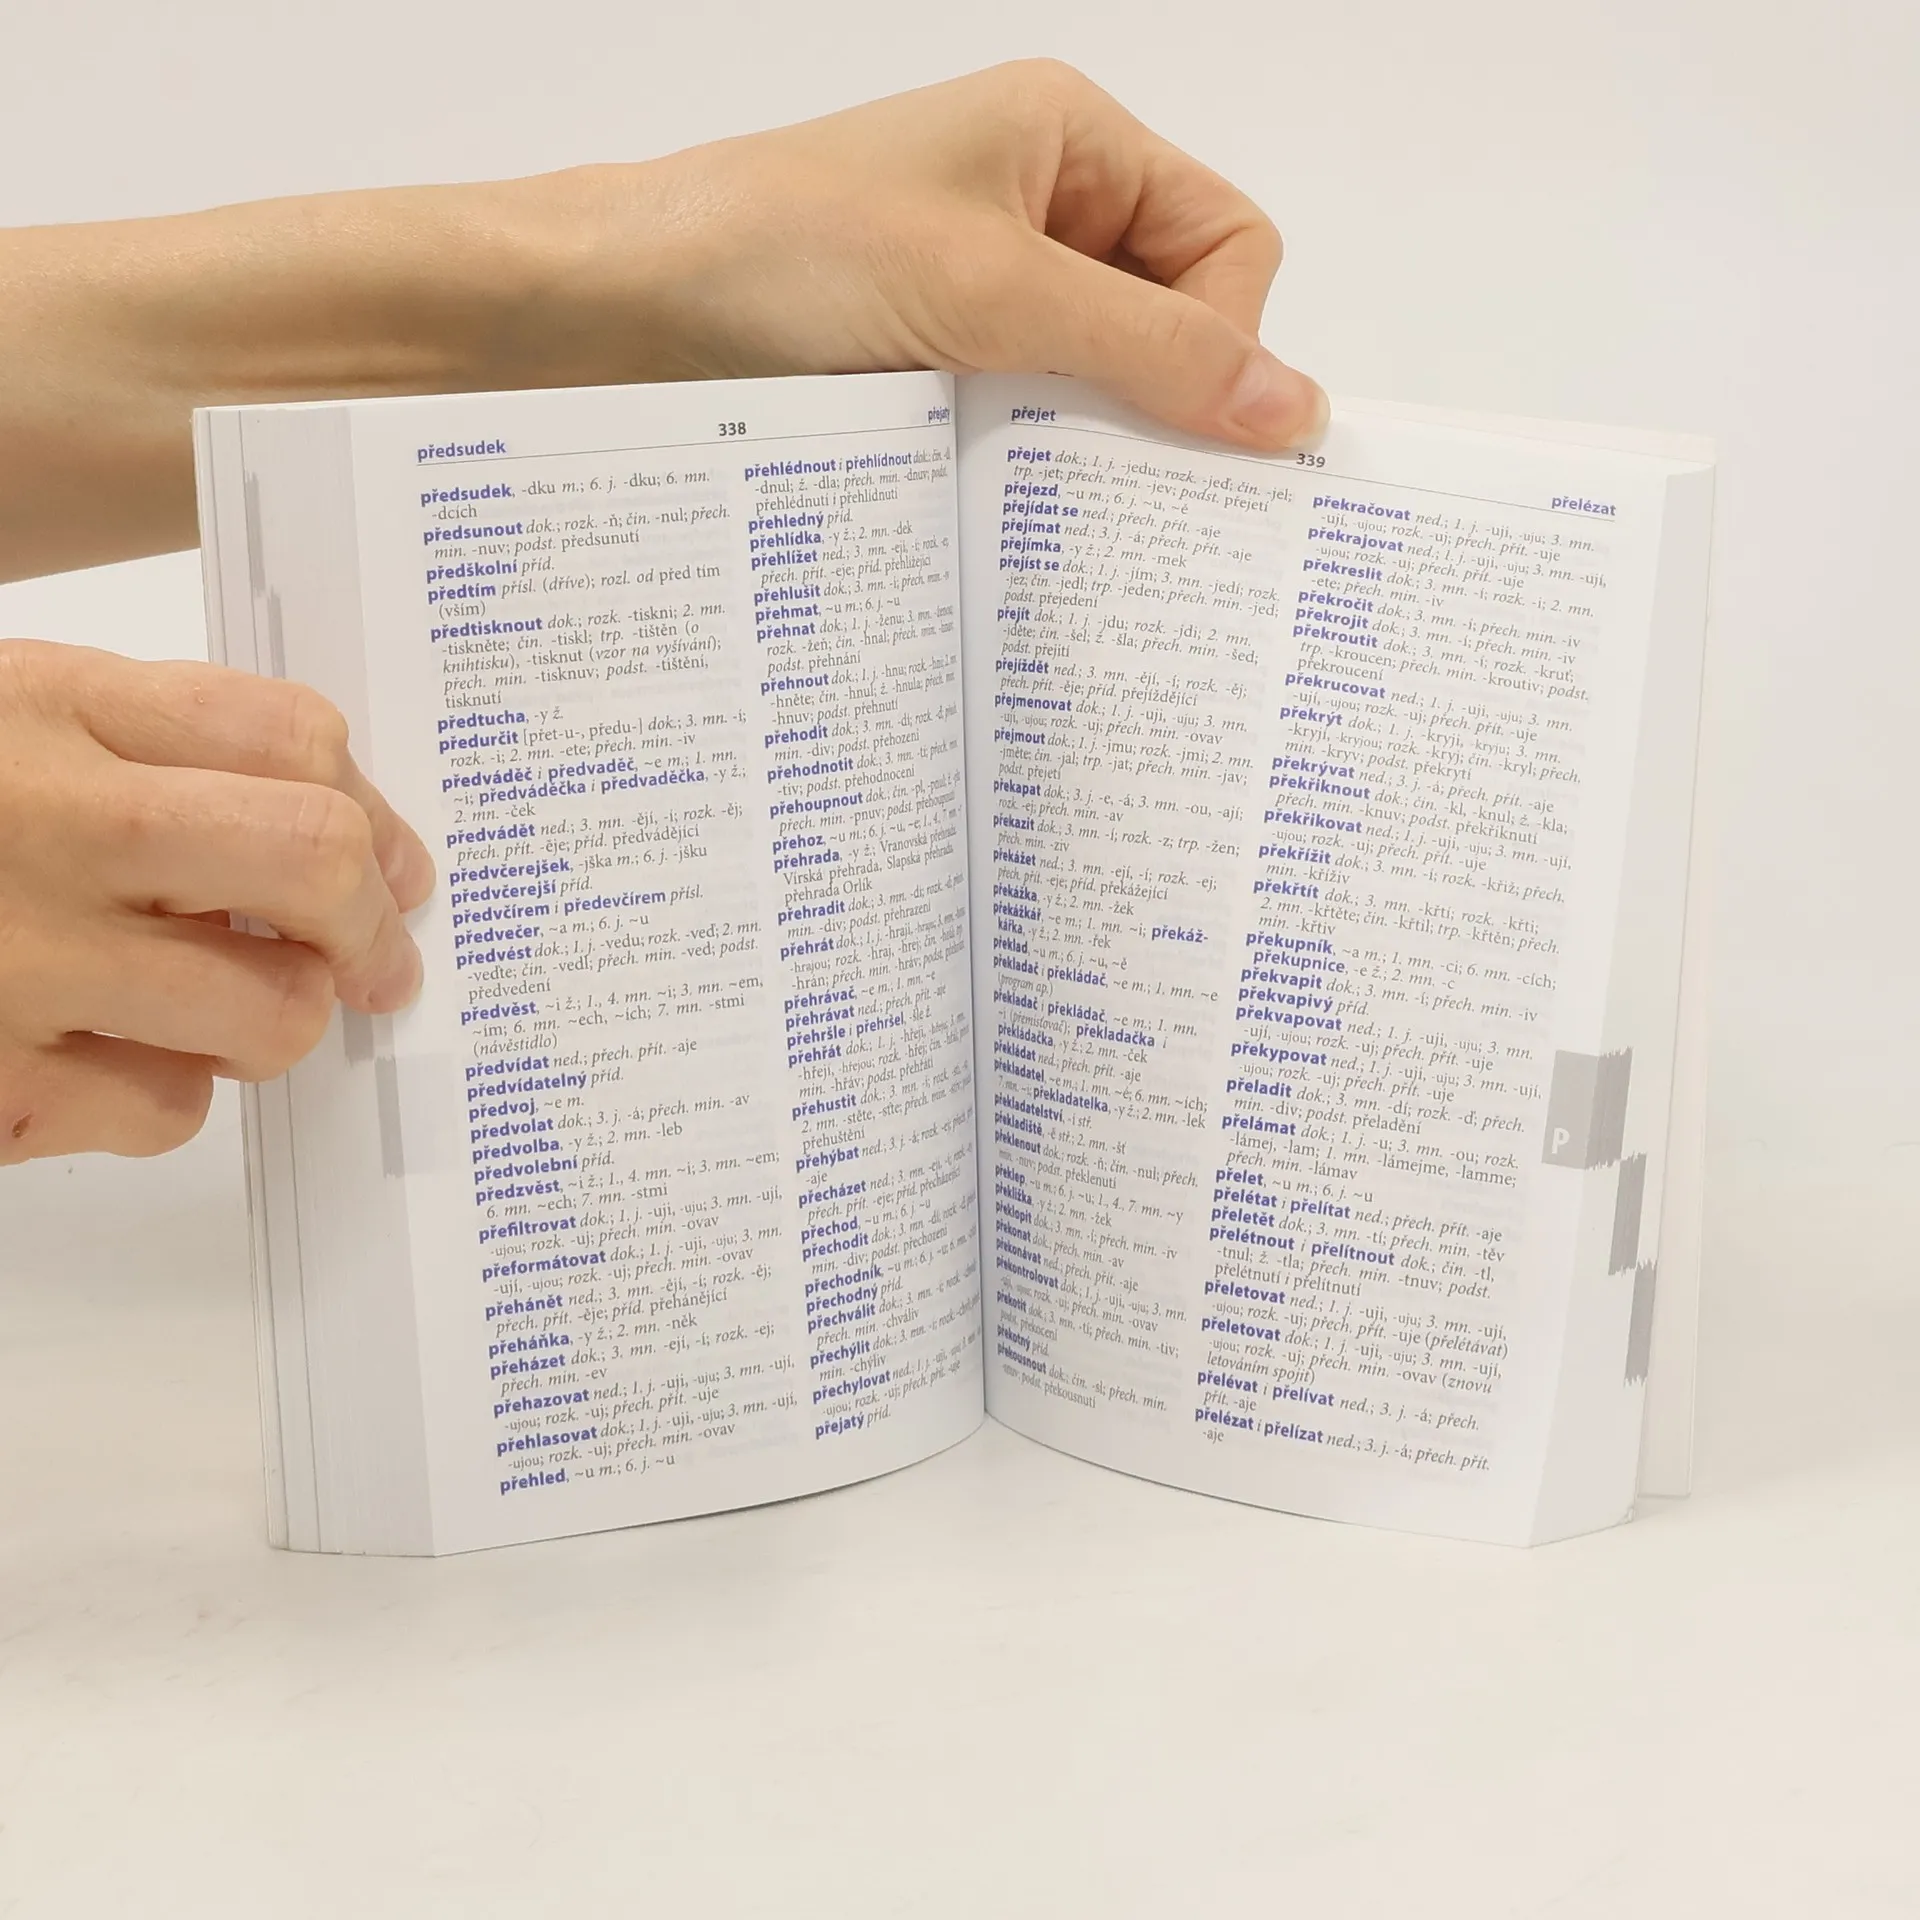 předsudek
338
přejatý
předsudek, -dku m.; 6. j. -dku; 6. mn.
-dcích
předsunout dok.; rozk. -ň; čin. -nul; přech.
min. -nuv; podst. předsunutí
předškolní příd.
předtím přísl. (dříve); rozl. od před tím
(vším)
předtisknout dok.; rozk. -tiskni; 2. mn.
-tiskněte; čin. -tiskl; trp. -tištěn (o
knihtisku), -tisknut (vzor na vyšívání);
přech. min. -tisknuv; podst. -tištění,
tisknutí
předtucha, -y ž.
předurčit [přet-u-, předu-] dok.; 3. mn. -í;
rozk. -i; 2. mn. -ete; přech. min. -iv
předváděč i předvaděč, ~e m.; 1. mn.
~i; předváděčka i předvaděčka, -y ž.;
2. mn. -ček
předvádět ned.; 3. mn. -ějí, -í; rozk. -ěj;
přech. přít. -ěje; příd. předvádějící
předvčerejšek, -jška m.; 6. j. -jšku
předvčerejší příd.
předvčírem i předevčírem přísl.
předvečer, ~a m.; 6. j. ~u
předvést dok.; 1. j. -vedu; rozk. -veď; 2. mn.
-veďte; čin. -vedl; přech. min. -ved; podst.
předvedení
předvěst, ~i ž.; 1., 4. mn. ~i; 3. mn. ~em,
~ím; 6. mn. ~ech, ~ích; 7. mn. -stmi
(návěstidlo)
předvídat ned.; přech. přít. -aje
předvídatelný příd.
předvoj, ~e m.
předvolat dok.; 3. j. -á; přech. min. -av
předvolba, -y ž.; 2. mn. -leb
předvolební příd.
předzvěst, ~i ž.; 1., 4. mn. ~i; 3. mn. ~em;
6. mn. ~ech; 7. mn. -stmi
přefiltrovat dok.; 1. j. -uji, -uju; 3. mn. -ují,
-ujou; rozk. -uj; přech. min. -ovav
přeformátovat dok.; 1. j. -uji, -uju; 3. mn.
-ují, -ujou; rozk. -uj; přech. min. -ovav
přehánět ned.; 3. mn. -ějí, -í; rozk. -ěj;
přech. přít. -ěje; příd. přehánějící
přeháňka, -y ž.; 2. mn. -něk
přeházet dok.; 3. mn. -ejí, -í; rozk. -ej;
přech. min. -ev
přehazovat ned.; 1. j. -uji, -uju; 3. mn. -ují,
-ujou; rozk. -uj; přech. přít. -uje
přehlasovat dok.; 1. j. -uji, -uju; 3. mn. -ují,
-ujou; rozk. -uj; přech. min. -ovav
přehled, ~u m.; 6. j. ~u
přehlédnout i přehlídnout dok.; čin. -dl,
-dnul; ž. -dla; přech. min. -dnuv; podst.
přehlédnutí i přehlídnutí
přehledný příd.
přehlídka, -y ž.; 2. mn. -dek
přehlížet ned.; 3. mn. -ejí, -í; rozk. -ej;
přech. přít. -eje; příd. přehlížející
přehlušit dok.; 3. mn. -í; přech. min. -iv
přehmat, ~u m.; 6. j. ~u
přehnat dok.; 1. j. -ženu; 3. mn. -ženou;
rozk. -žeň; čin. -hnal; přech. min. -hnav;
podst. přehnání
přehnout dok.; 1. j. -hnu; rozk. -hni; 2. mn.
-hněte; čin. -hnul; ž. -hnula; přech. min.
-hnuv; podst. přehnutí
přehodit dok.; 3. mn. -dí; rozk. -ď; přech.
min. -div; podst. přehození
přehodnotit dok.; 3. mn. -tí; přech. min.
-tiv; podst. přehodnocení
přehoupnout dok.; čin. -pl, -pnul; ž. -pla;
přech. min. -pnuv; podst. přehoupnutí
přehoz, ~u m.; 6. j. ~u, ~e; 1., 4., 7. mn. ~y
přehrada, -y ž.; Vranovská přehrada,
Vírská přehrada, Slapská přehrada,
přehrada Orlík
přehradit dok.; 3. mn. -dí; rozk. -ď; přech.
min. -div; podst. přehrazení
přehrát dok.; 1. j. -hraji, -hraju; 3. mn. -hrají,
-hrajou; rozk. -hraj, -hrej; čin. -hrál; trp.
-hrán; přech. min. -hráv; podst. přehrání
přehrávač, ~e m.; 1. mn. ~e
přehrávat ned.; přech. přít. -aje
přehršle i přehršel, -šle ž.
přehřát dok.; 1. j. -hřeji, -hřeju; 3. mn.
-hřejí, -hřejou; rozk. -hřej; čin. -hřál; přech.
min. -hřáv; podst. přehřátí
přehustit dok.; 3. mn. -í; rozk. -sti, -sť;
2. mn. -stěte, -sťte; přech. min. -stiv; podst.
přehuštění
přehýbat ned.; 3. j. -á; rozk. -ej; přech. přít.
-aje
přecházet ned.; 3. mn. -ejí, -í; rozk. -ej;
přech. přít. -eje; příd. přecházející
přechod, ~u m.; 6. j. ~u
přechodit dok.; 3. mn. -dí; rozk. -ď; přech.
min. -div; podst. přechození
přechodník, ~u m.; 6. j. ~u; 6. mn. -cích
přechodný příd.
přechválit dok.; 3. mn. -í; rozk. -chval;
přech. min. -chváliv
přechýlit dok.; 3. mn. -í; rozk. -chyl; přech.
min. -chýliv
přechylovat ned.; 1. j. -uji, -uju; 3. mn. -ují,
-ujou; rozk. -uj; přech. přít. -uje
přejatý příd.
přejet
339
přelézat
přejet dok.; 1. j. -jedu; rozk. -jeď; čin. -jel;
trp. -jet; přech. min. -jev; podst. přejetí
přejezd, ~u m.; 6. j. ~u, ~ě
přejídat se ned.; přech. přít. -aje
přejímat ned.; 3. j. -á; přech. přít. -aje
přejímka, -y ž.; 2. mn. -mek
přejíst se dok.; 1. j. -jím; 3. mn. -jedí; rozk.
-jez; čin. -jedl; trp. -jeden; přech. min. -jed;
podst. přejedení
přejít dok.; 1. j. -jdu; rozk. -jdi; 2. mn.
-jděte; čin. -šel; ž. -šla; přech. min. -šed;
podst. přejití
přejíždět ned.; 3. mn. -ějí, -í; rozk. -ěj;
přech. přít. -ěje; příd. přejíždějící
přejmenovat dok.; 1. j. -uji, -uju; 3. mn.
-ují, -ujou; rozk. -uj; přech. min. -ovav
přejmout dok.; 1. j. -jmu; rozk. -jmi; 2. mn.
-jměte; čin. -jal; trp. -jat; přech. min. -jav;
podst. přejetí
překapat dok.; 3. j. -e, -á; 3. mn. -ou, -ají;
rozk. -ej; přech. min. -av
překazit dok.; 3. mn. -í; rozk. -z; trp. -žen;
přech. min. -ziv
překážet ned.; 3. mn. -ejí, -í; rozk. -ej;
přech. přít. -eje; příd. překážející
překážka, -y ž.; 2. mn. -žek
překážkář, ~e m.; 1. mn. ~i; překáž-
kářka, -y ž.; 2. mn. -řek
překlad, ~u m.; 6. j. ~u, ~ě
překladač i překládač, ~e m.; 1. mn. ~e
(program ap.)
překladač i překládač, ~e m.; 1. mn.
~i (přemisťovač); překladačka i
překládačka, -y ž.; 2. mn. -ček
překládat ned.; přech. přít. -aje
překladatel, ~e m.; 1. mn. ~é; 6. mn. ~ích;
7. mn. ~i; překladatelka, -y ž.; 2. mn. -lek
překladatelství, -í stř.
překladiště, -ě stř.; 2. mn. -šť
překlenout dok.; rozk. -ň; čin. -nul; přech.
min. -nuv; podst. překlenutí
překlep, ~u m.; 6. j. ~u; 1., 4., 7. mn. ~y
překližka, -y ž.; 2. mn. -žek
překlopit dok.; 3. mn. -í; přech. min. -iv
překonat dok.; přech. min. -av
překonávat ned.; přech. přít. -aje
překontrolovat dok.; 1. j. -uji, -uju; 3. mn.
-ují, -ujou; rozk. -uj; přech. min. -ovav
překotit dok.; 3. mn. -tí; přech. min. -tiv;
podst. překocení
překotný příd.
překousnout dok.; čin. -sl; přech. min.
-snuv; podst. překousnutí
překračovat ned.; 1. j. -uji, -uju; 3. mn.
-ují, -ujou; rozk. -uj; přech. přít. -uje
překrajovat ned.; 1. j. -uji, -uju; 3. mn. -ují,
-ujou; rozk. -uj; přech. přít. -uje
překreslit dok.; 3. mn. -í; rozk. -i; 2. mn.
-ete; přech. min. -iv
překročit dok.; 3. mn. -í; přech. min. -iv
překrojit dok.; 3. mn. -í; přech. min. -iv
překroutit dok.; 3. mn. -í; rozk. -kruť;
trp. -kroucen; přech. min. -kroutiv; podst.
překroucení
překrucovat ned.; 1. j. -uji, -uju; 3. mn.
-ují, -ujou; rozk. -uj; přech. přít. -uje
překrýt dok.; 1. j. -kryji, -kryju; 3. mn.
-kryjí, -kryjou; rozk. -kryj; čin. -kryl; přech.
min. -kryv; podst. překrytí
překrývat ned.; 3. j. -á; přech. přít. -aje
překřiknout dok.; čin. -kl, -knul; ž. -kla;
přech. min. -knuv; podst. překřiknutí
překřikovat ned.; 1. j. -uji, -uju; 3. mn. -ují,
-ujou; rozk. -uj; přech. přít. -uje
překřížit dok.; 3. mn. -í; rozk. -křiž; přech.
min. -kříživ
překřtít dok.; 3. mn. -křtí; rozk. -křti;
2. mn. -křtěte; čin. -křtil; trp. -křtěn; přech.
min. -křtiv
překupník, ~a m.; 1. mn. -ci; 6. mn. -cích;
překupnice, -e ž.; 2. mn. -c
překvapit dok.; 3. mn. -í; přech. min. -iv
překvapivý příd.
překvapovat ned.; 1. j. -uji, -uju; 3. mn.
-ují, -ujou; rozk. -uj; přech. přít. -uje
překypovat ned.; 1. j. -uji, -uju; 3. mn. -ují,
-ujou; rozk. -uj; přech. přít. -uje
přeladit dok.; 3. mn. -dí; rozk. -ď; přech.
min. -div; podst. přeladění
přelámat dok.; 1. j. -u; 3. mn. -ou; rozk.
-lámej, -lam; 1. mn. -lámejme, -lamme;
přech. min. -lámav
přelet, ~u m.; 6. j. ~u
přelétat i přelítat ned.; přech. přít. -aje
přeletět dok.; 3. mn. -tí; přech. min. -těv
přelétnout i přelítnout dok.; čin. -tl,
-tnul; ž. -tla; přech. min. -tnuv; podst.
přelétnutí i přelítnutí
přeletovat ned.; 1. j. -uji, -uju; 3. mn. -ují,
-ujou; rozk. -uj; přech. přít. -uje (přelétávat)
přeletovat dok.; 1. j. -uji, -uju; 3. mn. -ují,
-ujou; rozk. -uj; přech. min. -ovav (znovu
letováním spojit)
přelévat i přelívat ned.; 3. j. -á; přech.
přít. -aje
přelézat i přelízat ned.; 3. j. -á; přech. přít.
-aje
P